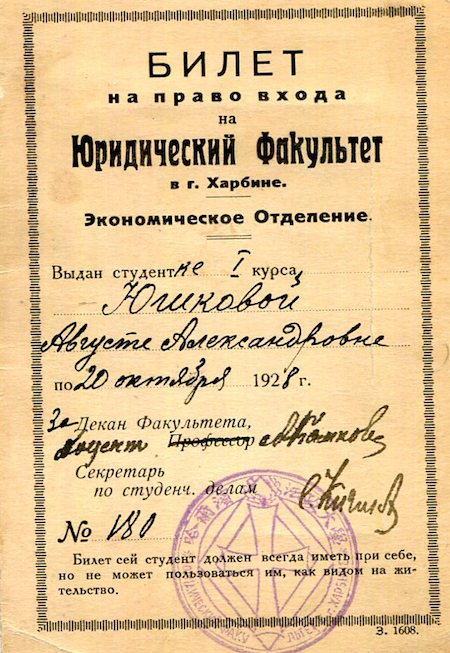 БИЛЕТ
на право входа
на
Юридический Факультет
в г. Харбине.
Экономическое Отделение.
Выдан студентке I курса
Юшковой
Августе Александровне
по 20 октября 1928 г.
За Декан Факультета,
доцент Профессор
Секретарь
по студенч. делам
№ 180
Билет сей студент должен всегда иметь при себе,
но не может пользоваться им, как видом на жи-
тельство.
З. 1608.